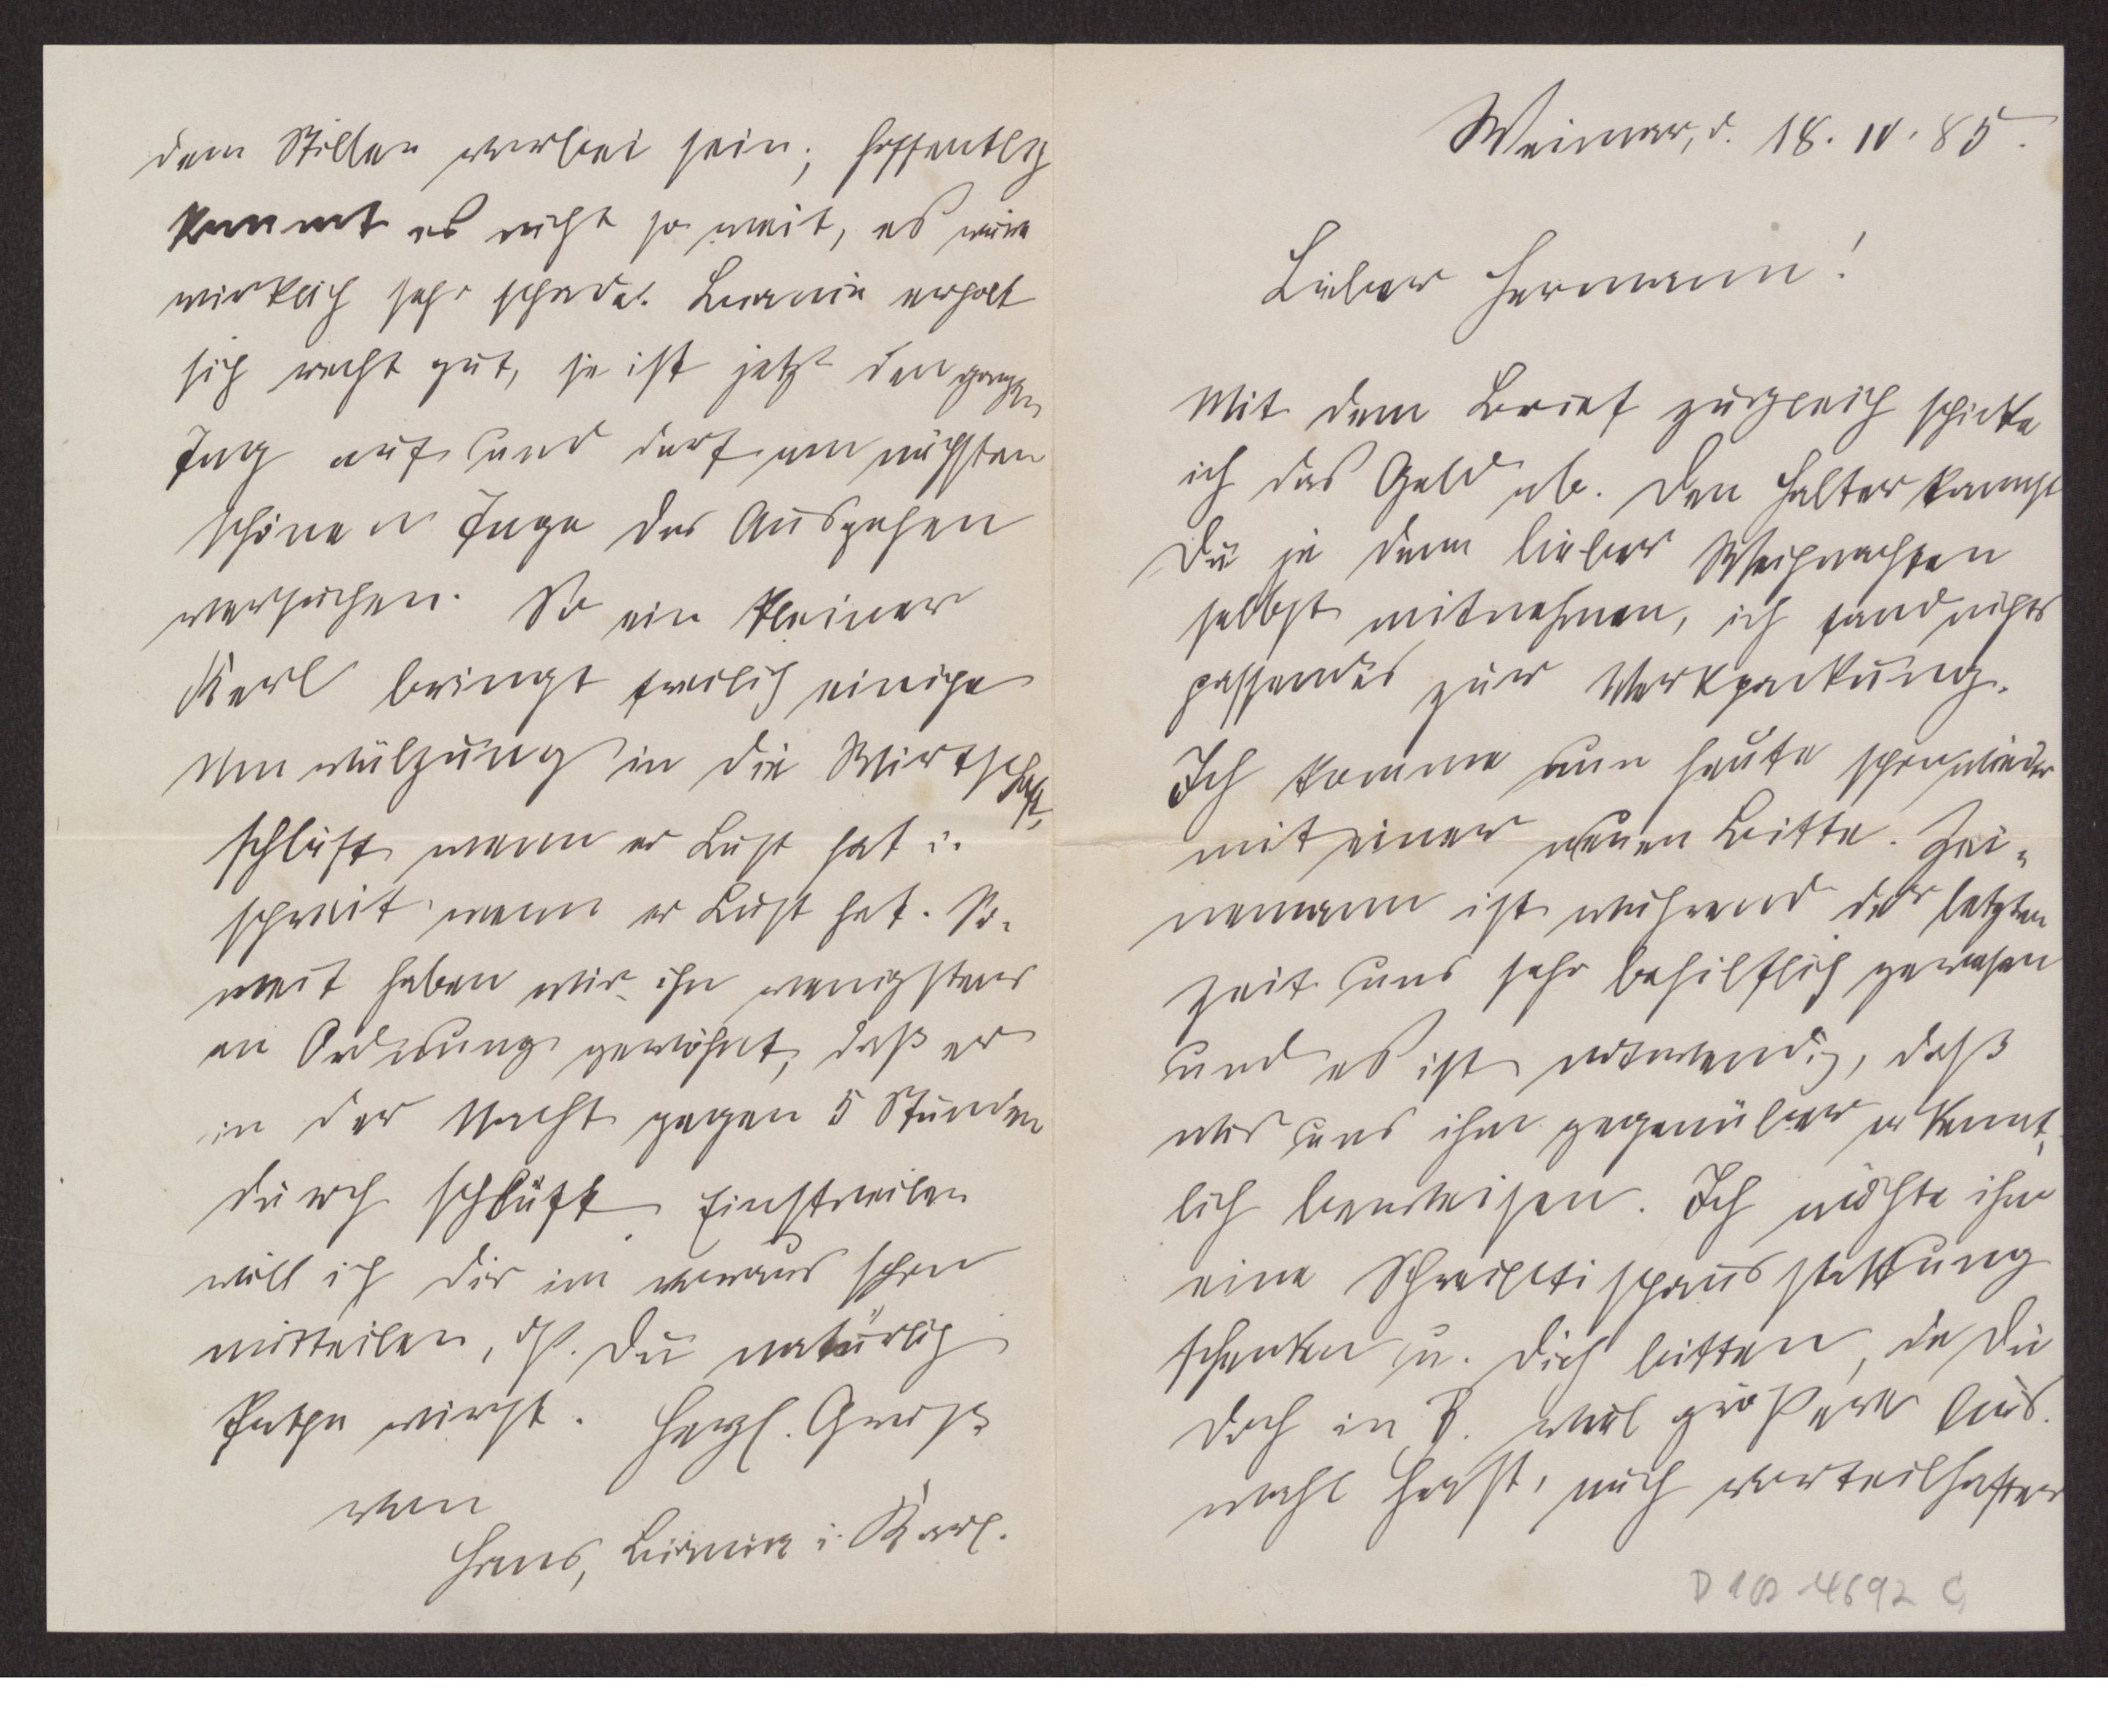 Weimar, d. 18. IV. 85.
Lieber Hermann!
Mit dem Brief zugleich schicke
ich das Geld ab. Den Halter kannst
Du ja dann lieber Weihnachten
selbst mitnehmen, ich fand nichts
passendes zur Verkpackung.
Ich komme nun heute schon wieder
mit einer neuen Bitte. Zei-
nemann ist während der letzten
Zeit uns sehr behilflich gewesen
und es ist notwendig, daß
wir uns ihm gegenüber erkennt-
lich beweisen. Ich möchte ihm
eine Schreibtischausstattung
schenken u. Dich bitten, da Du
doch in B. viel größere Aus-
wahl hast, auch vorteilhafter
D 10 4692 C
dem Stillen vorbei sein; hoffentlich
kommt es nicht so weit, es wäre
wirklich sehr schade. erholt
sich recht gut, sie ist jetzt den ganzen
Tag auf und darf am nächsten
schönen Tage das Ausgehen
versuchen. So ein kleiner
Kerl bringt freilich einige
Umwälzung in die Wirtschaft,
schläft wenn er Lust hat u.
schreit wenn er Lust hat. So-
weit haben wir ihn wenigstens
an Ordnung gewöhnt, daß er
in der Nacht gegen 5 Stunden
durch schläft. Einstweilen
will ich Dir im voraus schon
mitteilen, dß. Du natürlich
Pathe wirst. Herzl. Gruß
von
Hans, u. Karl.